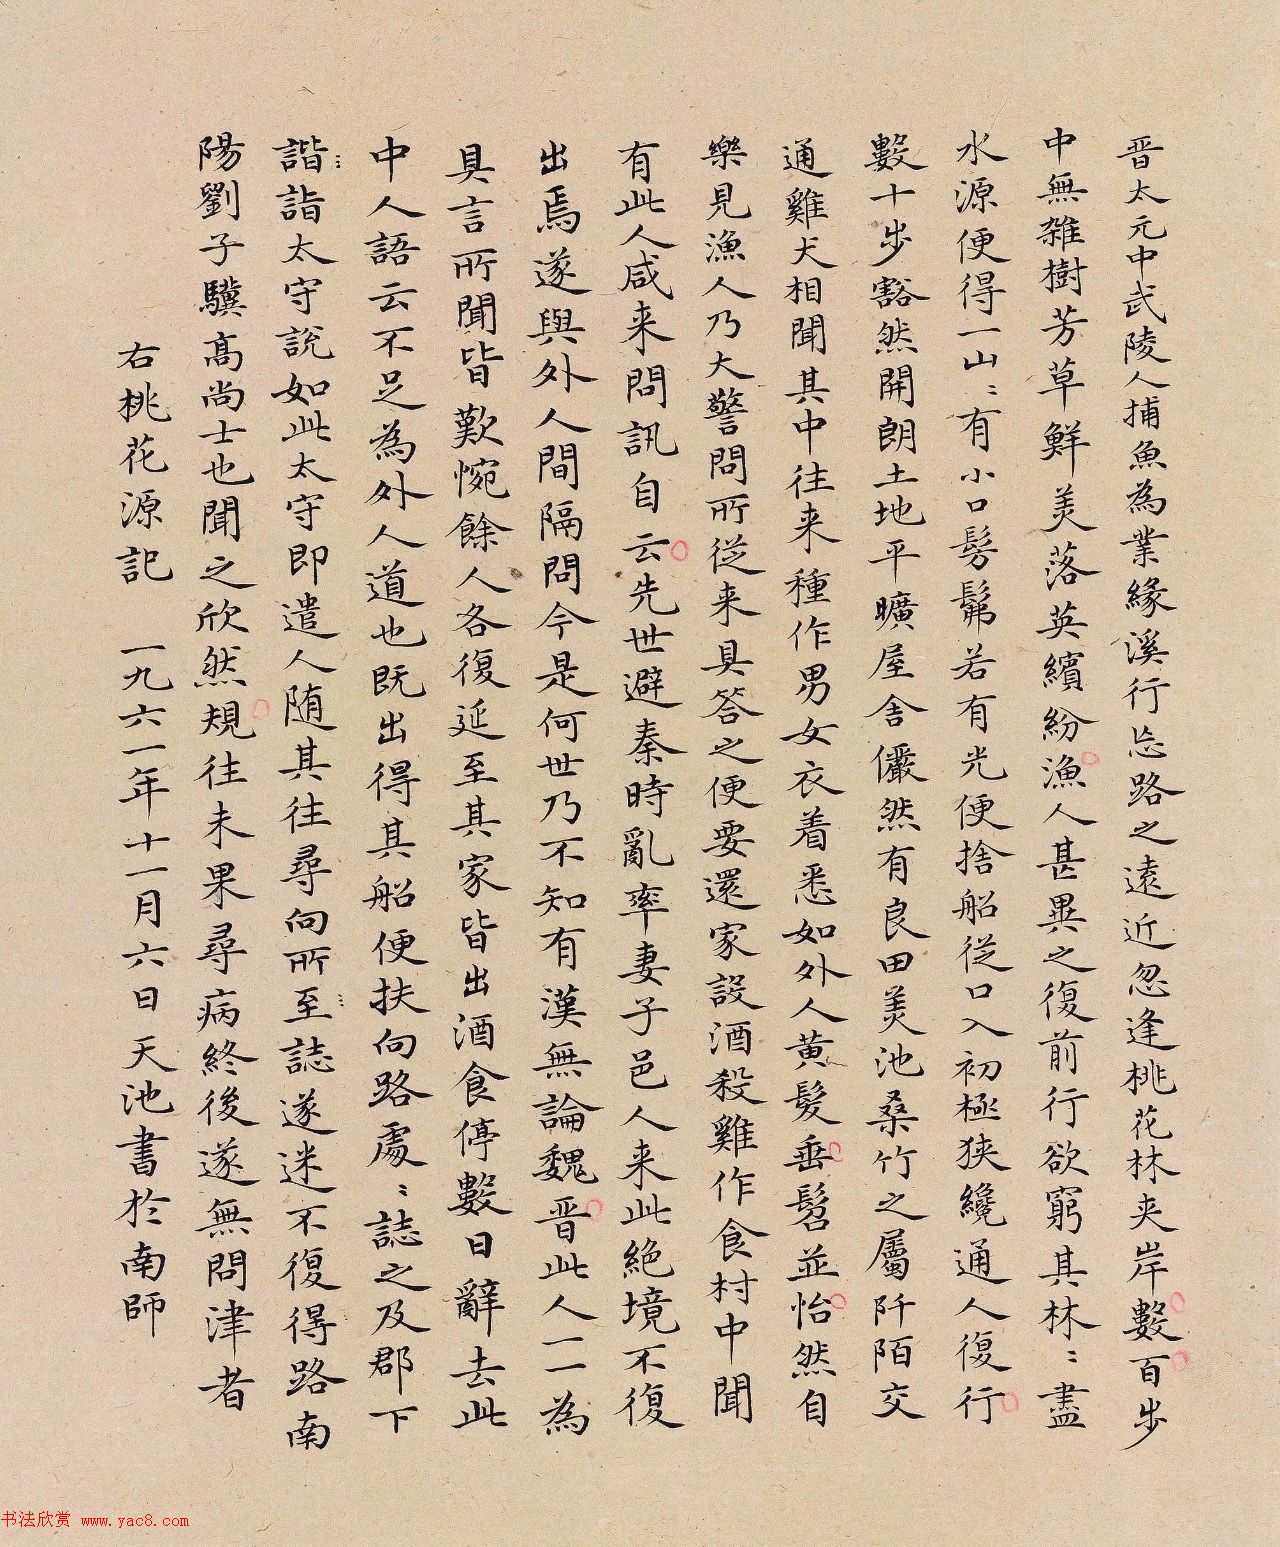 晋太元中武陵人捕魚為業緣溪行忘路之遠近忽逢桃花林夾岸數百步
中無雜樹芳草鮮美落英繽紛漁人甚異之復前行欲窮其林〻盡
水源便得一山〻有小口髣髴若有光便捨船從口入初極狹纔通人復行
數十步豁然開朗土地平曠屋舍儼然有良田美池桑竹之屬阡陌交
通雞犬相聞其中往来種作男女衣着悉如外人黄髮垂髫並怡然自
樂見漁人乃大驚問所從来具答之便要還家設酒殺雞作食村中聞
有此人咸来問訊自云先世避秦時亂率妻子邑人来此絶境不復
出焉遂與外人間隔問今是何世乃不知有漢無論魏晋此人一一為
具言所聞皆歎惋餘人各復延至其家皆出酒食停數日辭去此
中人語云不足為外人道也既出得其船便扶向路處〻誌之及郡下
諧詣太守說如此太守即遣人随其往尋向所至誌遂迷不復得路南
陽劉子驥高尚士也聞之欣然規往未果尋病終後遂無問津者
右桃花源記 一九六一年十一月六日天池書於南師
书法欣赏 www.yac8.com